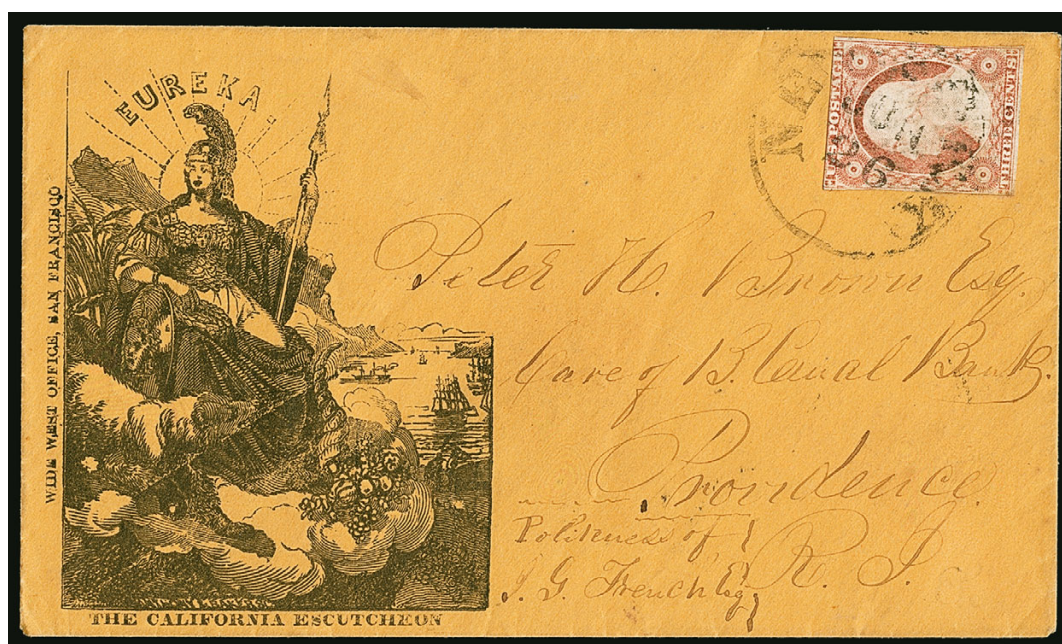 EUREKA.
WIDE WEST OFFICE, SAN FRANCISCO
THE CALIFORNIA ESCUTCHEON
U.S. POSTAGE
THREE CENTS
NE
26
Peter H. Brown Esq.
Care of B. Canal Bank.
Providence
R. I.
Politeness of
J. G. French Esq